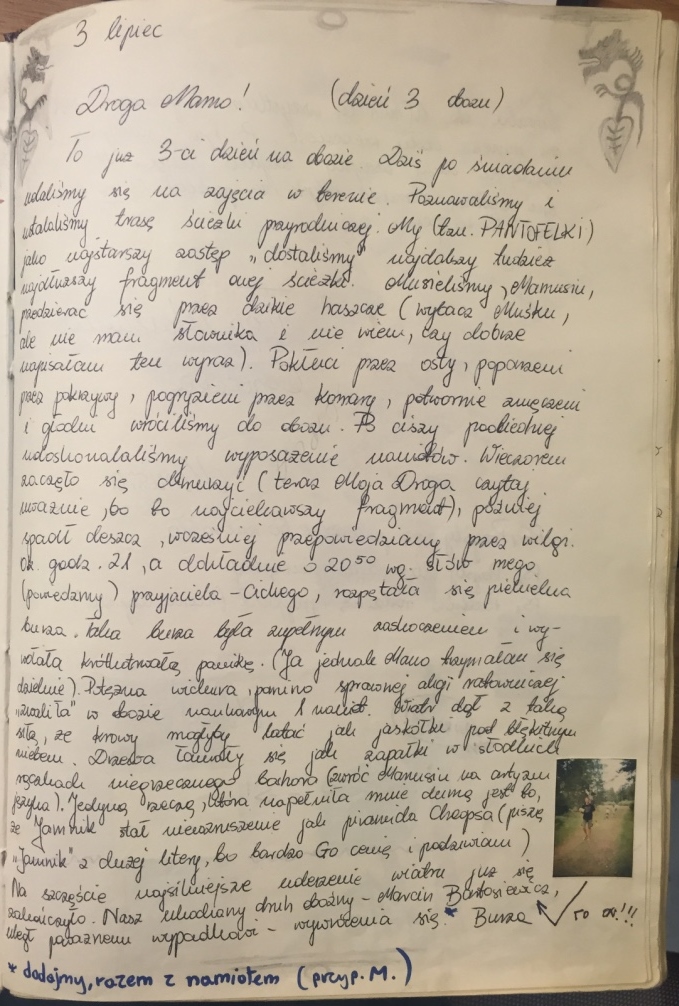 3 lipiec
Droga Mamo! (dzień 3 obozu)
To już 3-ci dzień na obozie. Dziś po śniadaniu
udaliśmy się na zajęcia w terenie. Poznawaliśmy i
ustalaliśmy trasę ścieżki przyrodniczej. My (tzn. PANTOFELKI)
jako najstarszy zastęp "dostaliśmy" najdalszy tudzież
najdłuższy fragment owej ścieżki. Musieliśmy, Mamusiu,
przedzierać się przez dzikie haszcze (wybacz Muśku,
ale nie mam słownika i nie wiem, czy dobrze
napisałam ten wyraz). Pokłuci przez osty, poparzeni
przez pokrzywy, pogryzieni przez komary, potwornie zmęczeni
i głodni wróciliśmy do obozu. Po ciszy poobiedniej
udoskonalaliśmy wyposażenie namiotów. Wieczorem
zaczęło się chmurzyć (teraz Moja Droga czytaj
uważnie, bo to najciekawszy fragment), później
spadł deszcz, wcześniej przepowiedziany przez wilgi.
Ok. godz. 21, a dokładnie o 20⁵⁰ wg. słów mego
(powiedzmy) przyjaciela - Cichego, rozpętała się piekielna
burza. Taka burza była zupełnym zaskoczeniem i wy-
wołała krótkotrwałą panikę. (Ja jednak Mamo trzymałam się
dzielnie). Potężna wichura, pomimo sprawnej akcji ratowniczej
"zwaliła" w obozie naukowym 1 namiot. Wiatr dął z taką
siłą, że krowy mogłyby latać jak jaskółki pod błękitnym
niebem. Drzewa łamały się jak zapałki w słodkich
rączkach niegrzecznego bachora (zwróć Mamusiu na artyzm
języka). Jedyną rzeczą, która napełniła mnie dumą jest to,
że "Jamnik" stał niewzruszenie jak piramida Cheopsa (piszę
"Jamnik" z dużej litery, bo bardzo Go cenię i podziwiam)
Na szczęście najsilniejsze uderzenie wiatru już się
zakończyło. Nasz ukochany druh oboźny - Marcin Bartosiewicz,
uległ poważnemu wypadkowi - wywrócenia się.* Burza
TO ON!!!
* dodajmy, razem z namiotem (przyp. M.)